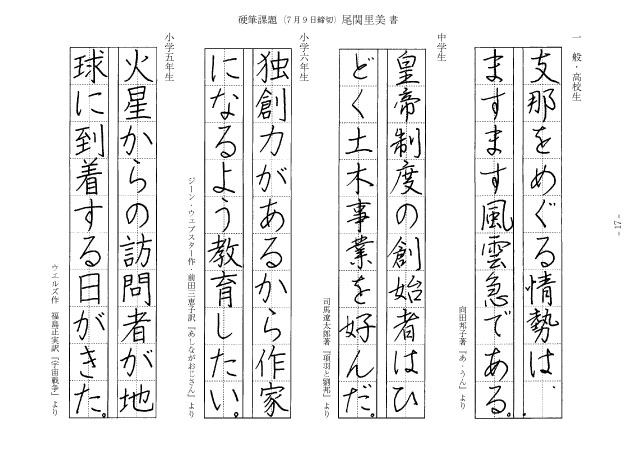 硬筆課題（7月9日締切）尾関里美 書
一般・高校生
支那をめぐる情勢は、
ますます風雲急である。
向田邦子著『あ・うん』より
中学生
皇帝制度の創始者はひ
どく土木事業を好んだ。
司馬遼太郎著『項羽と劉邦』より
小学六年生
独創力があるから作家
になるよう教育したい。
ジーン・ウエブスター作 前田三恵子訳『あしながおじさん』より
小学五年生
火星からの訪問者が地
球に到着する日がきた。
ウエルズ作 福島正実訳『宇宙戦争』より
- 17 -